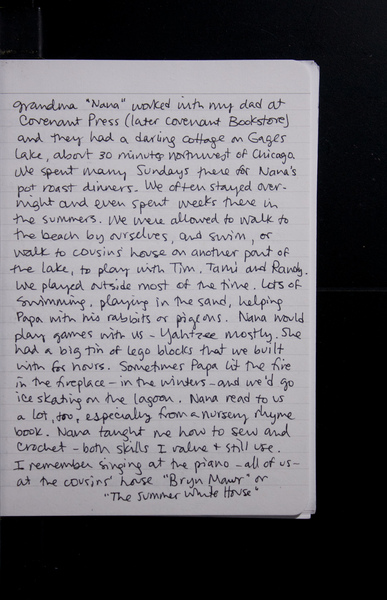 grandma "Nana" worked with my dad at
Covenant Press (later Covenant Bookstore)
and they had a darling cottage on Gages
Lake, about 30 minutes northwest of Chicago
We spent many Sundays there for Nana's
pot roast dinners. We often stayed over-
night and even spent weeks there in
the summers. We were allowed to walk to
the beach by ourselves, and swim, or
walk to cousins' house on another part of
the lake, to play with Tim, Tami and Randy.
We played outside most of the time. Lots of
swimming, playing in the sand, helping
Papa with his rabbits or pigeons. Nana would
play games with us - Yahtzee mostly. She
had a big tin of lego blocks that we built
with for hours. Sometimes Papa lit the fire
in the fireplace - in the winters - and we'd go
ice skating on the lagoon. Nana read to us
a lot, too, especially from a nursery rhyme
book. Nana taught me how to sew and
crochet - both skills I value + still use.
I remember singing at the piano - all of us -
at the cousins' house "Bryn Mawr" or
"The Summer White House"